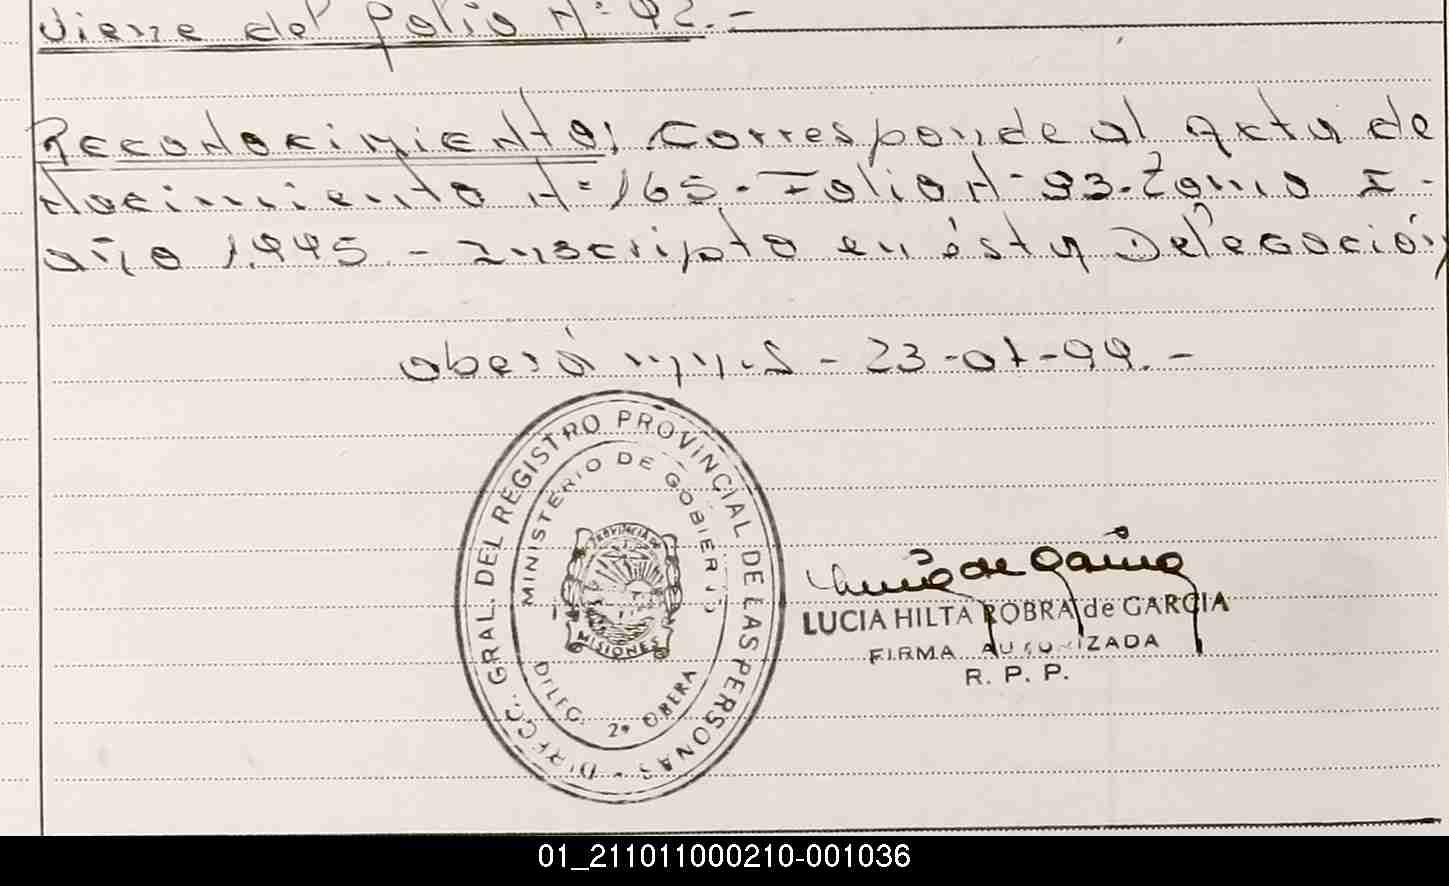 Viene del folio Nº 92.-
Reconocimiento, Corresponde al Acta de
Nacimiento Nº 165. Folio Nº 93. Tomo I -
año 1.995 - Inscripto en ésta Delegación
Oberá mnes - 23-01-99.-
DIRECC. GRAL. DEL REGISTRO PROVINCIAL DE LAS PERSONAS -
MINISTERIO DE GOBIERNO
PROVINCIA DE
MISIONES
DELEG. 2º OBERA
LUCIA HILTA ROBRA de GARCIA
FIRMA AUTORIZADA
R. P. P.
01_211011000210-001036